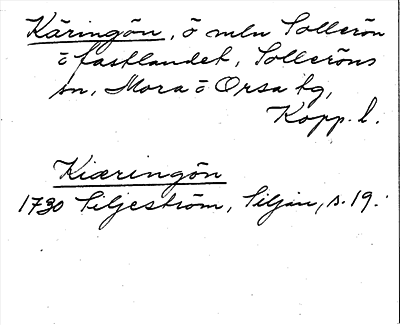 Käringön, ö mln Sollerön
o fastlandet, Solleröns
sn, Mora o Orsa tg,
Kopp. l.
Kiæringön
1730 Siljeström, Siljan, s. 19.